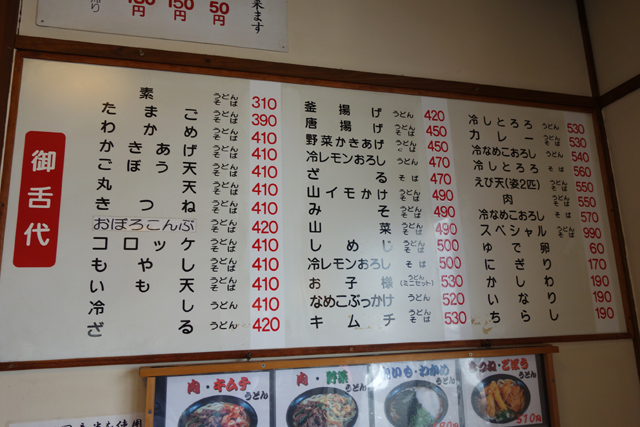 130円 150円 50円
来ます
御舌代
素 うどん そば 310
たまご うどん そば 390
わかめ うどん そば 410
かきあげ うどん そば 410
ごぼう天 うどん そば 410
丸天 うどん そば 410
きつね うどん そば 410
おぼろこんぶ うどん そば 420
コロッケ うどん そば 410
もやし うどん そば 410
いも天 うどん そば 410
冷し うどん 410
ざる うどん 420
釜揚げ うどん 420
唐揚げ うどん そば 450
野菜かきあげ うどん そば 450
冷レモンおろし うどん 470
ざる そば 470
山イモかけ うどん そば 490
みそ うどん そば 490
山菜 うどん そば 490
しめじ うどん そば 500
冷レモンおろし そば 500
お子様 うどん (ミニセット) 530
なめこぶっかけ うどん 520
キムチ うどん そば 530
冷しとろろ うどん 530
カレー うどん そば 530
冷なめこおろし うどん 540
冷しとろろ そば 560
えび天(姿2匹) うどん そば 550
肉 うどん そば 550
冷なめこおろし そば 570
スペシャル うどん そば 990
ゆで卵 60
にぎり 170
かしわ 190
いなり 190
ちらし 190
肉・キムチ うどん
肉・野菜 うどん
わかめ うどん
きつね・ごぼう うどん
510円